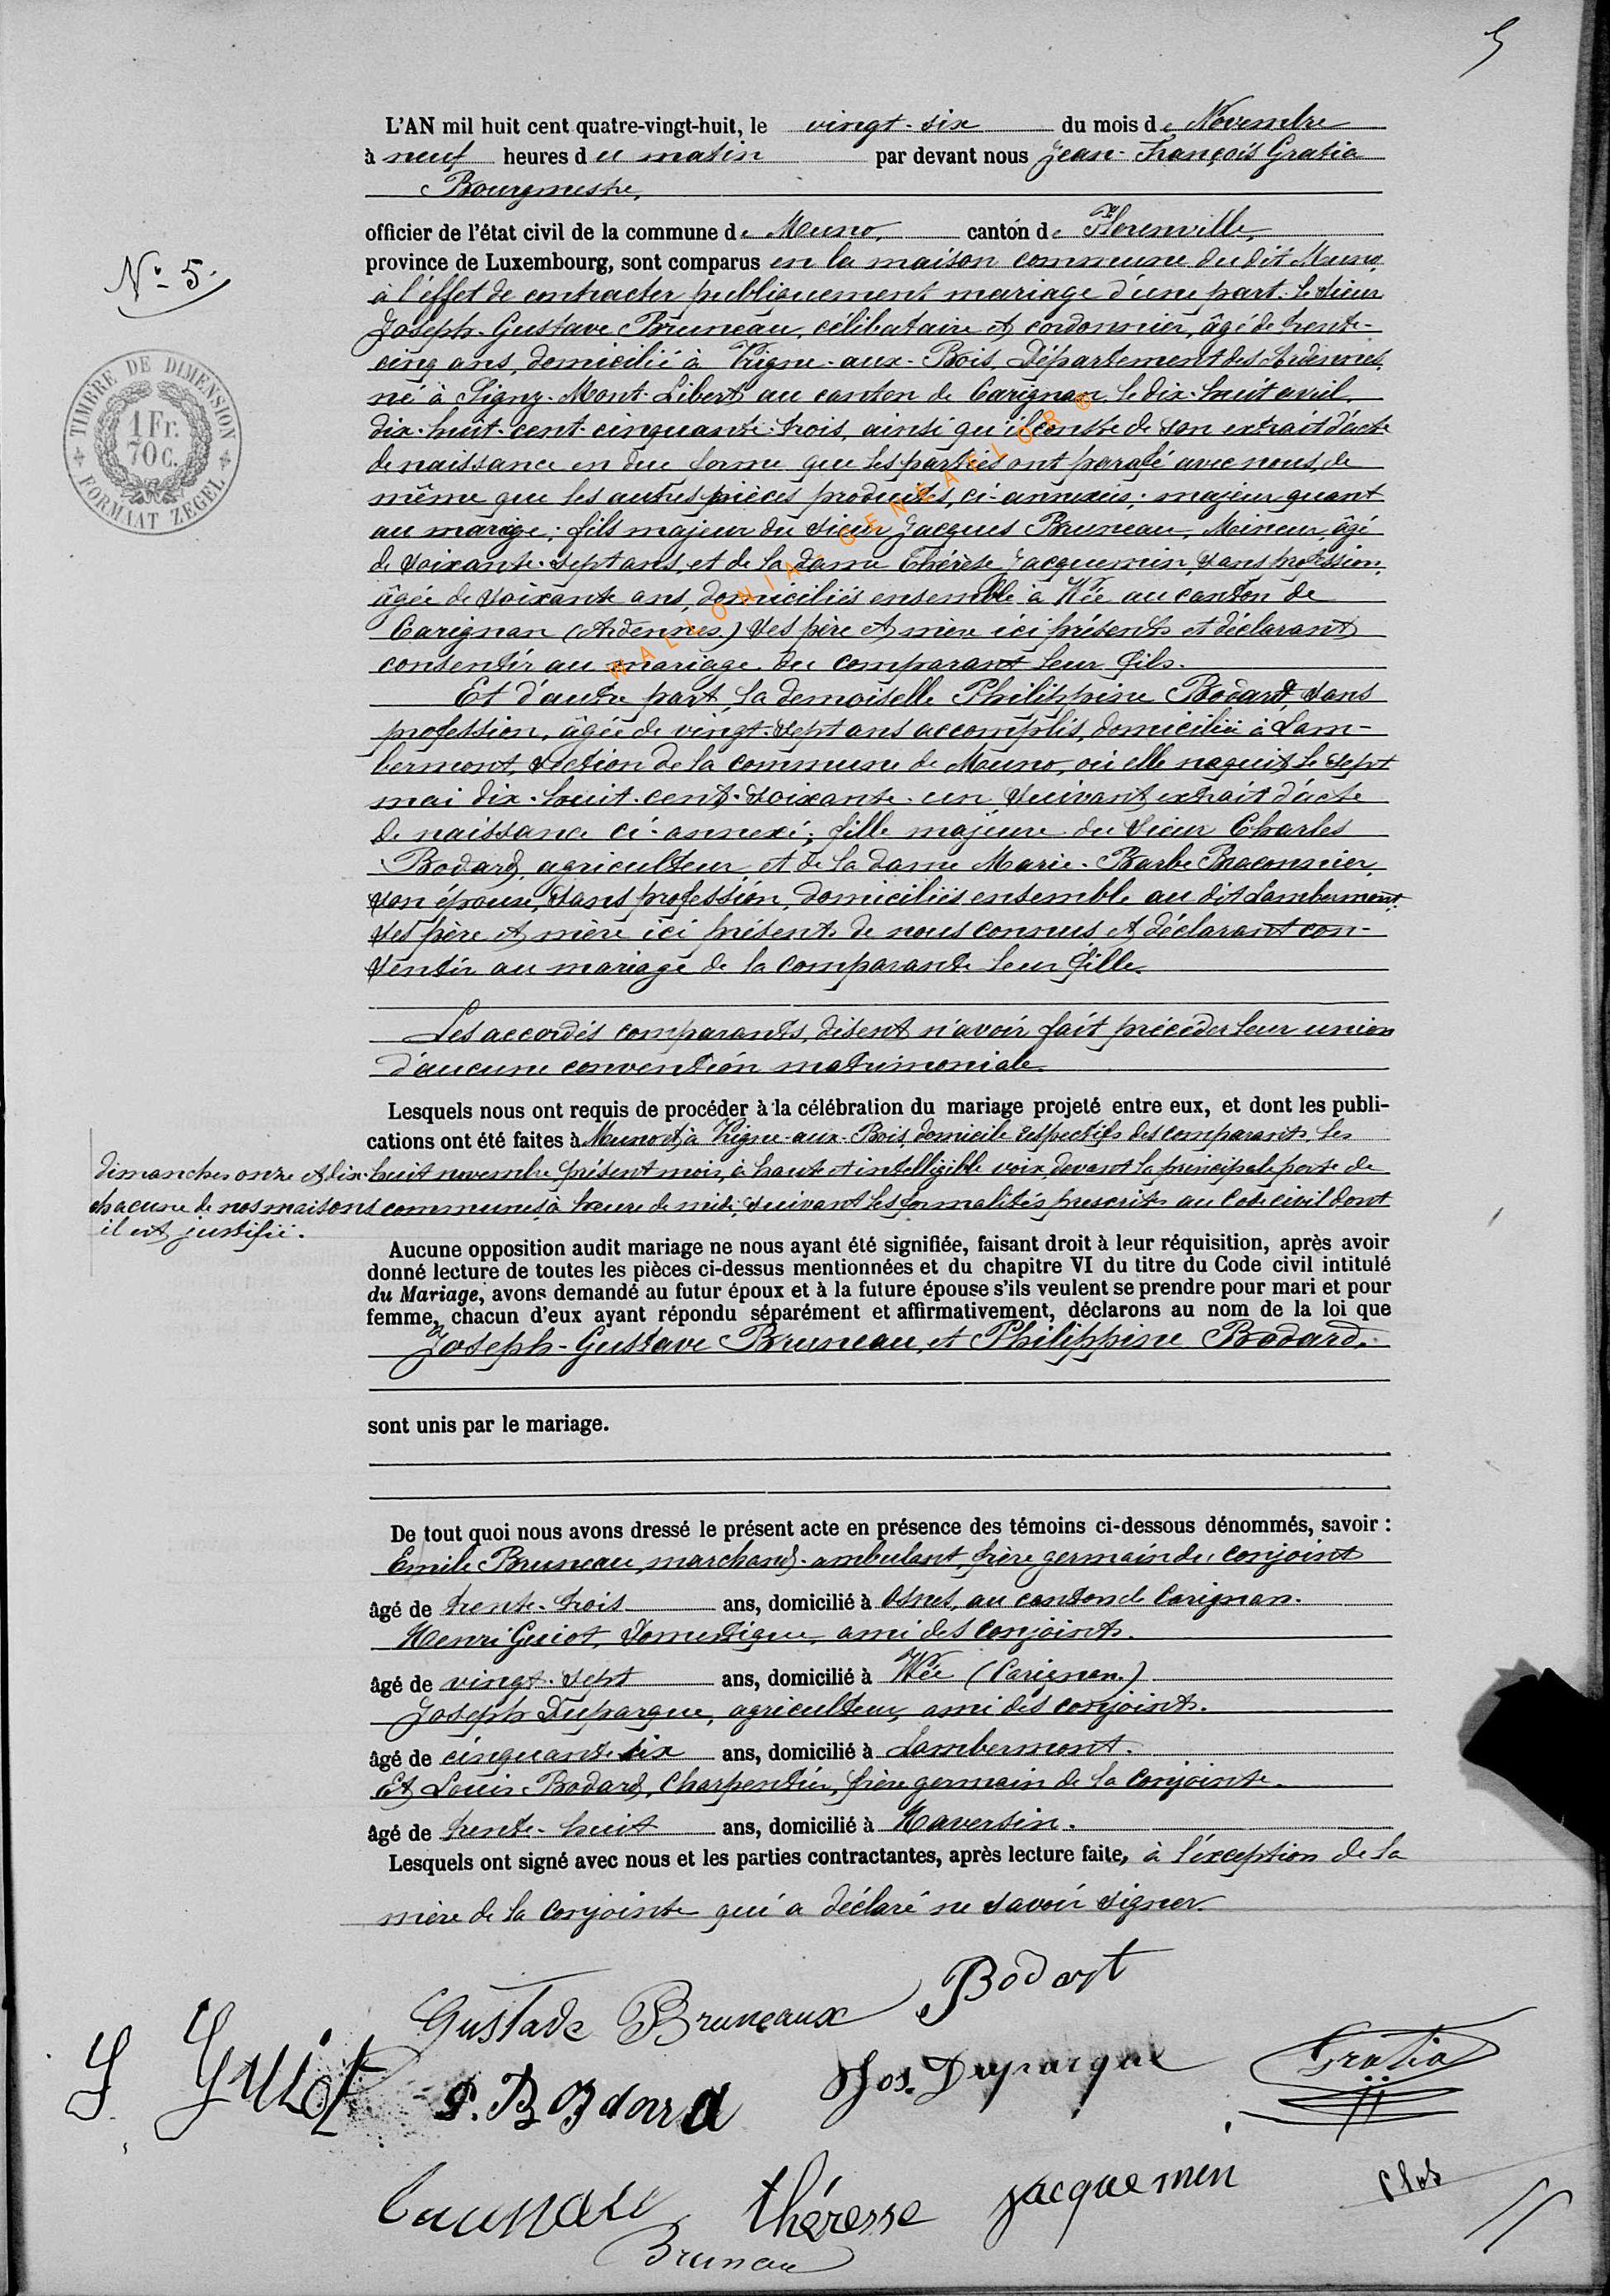 5
L'AN mil huit cent quatre-vingt-huit, le vingt-six du mois de Novembre
à neuf heures du matin par devant nous Jean-François Gratia
Bourgmestre,
officier de l'état civil de la commune de Muno, canton de Florenville,
province de Luxembourg, sont comparus en la maison commune du dit Muno,
à l'effet de contracter publiquement mariage d'une part: le sieur
Joseph-Gustave Bruneau, célibataire et cordonnier, âgé de trente-
cinq ans, domicilié à Vrigne-aux-Bois, Département des Ardennes,
né à Signy-Mont-Libert au canton de Carignan le dix-huit avril
dix-huit-cent-cinquante-trois, ainsi qu'il conste de son extrait d'acte
de naissance en due forme que les parties ont parafé avec nous, de
même que les autres pièces produites, ci-annexées; majeur quant
au mariage; fils majeur du sieur Jacques Bruneau, Mineur, âgé
de soixante-sept ans, et de la dame Thérèse Jacquemin, sans profession,
âgée de soixante ans, domiciliés ensemble à Wée au canton de
Carignan (Ardennes) ses père et mère ici présents et déclarant
consentir au mariage du comparant leur fils.
Et d'autre part, la demoiselle Philippine Bodard, sans
profession, âgée de vingt-sept ans accomplis, domiciliée à Lam-
bermont, section de la commune de Muno, où elle naquit le sept
mai dix-huit-cent-soixante-un, suivant extrait d'acte
de naissance ci-annexé; fille majeure du sieur Charles
Bodard, agriculteur, et de la dame Marie-Barbe Braconnier,
son épouse, sans profession, domiciliés ensemble au dit Lambermont,
ses père et mère ici présents de nous connus et déclarant con-
sentir au mariage de la comparante leur fille.
Les accordés comparants, disent n'avoir fait précéder leur union
d'aucune convention matrimoniale.
Lesquels nous ont requis de procéder à la célébration du mariage projeté entre eux, et dont les publi-
cations ont été faites à Muno et à Vrigne-aux-Bois, domicile respectifs des comparants, les
dimanches onze et dix-huit novembre, présent mois, à haute et intelligible voix, devant la principale porte de
chacune de nos maisons communes, à heure de midi, suivant les formalités prescrites au Code civil dont
il est justifié.
Aucune opposition audit mariage ne nous ayant été signifiée, faisant droit à leur réquisition, après avoir
donné lecture de toutes les pièces ci-dessus mentionnées et du chapitre VI du titre du Code civil intitulé
du Mariage, avons demandé au futur époux et à la future épouse s'ils veulent se prendre pour mari et pour
femme, chacun d'eux ayant répondu séparément et affirmativement, déclarons au nom de la loi que
Joseph-Gustave Bruneau, et Philippine Bodard.
sont unis par le mariage.
De tout quoi nous avons dressé le présent acte en présence des témoins ci-dessous dénommés, savoir :
Emile Bruneau, marchand-ambulant, frère germain du conjoint
âgé de trente-trois ans, domicilié à Osnes, au canton de Carignan.
Henri Guiot, domestique, ami des conjoints.
âgé de vingt-sept ans, domicilié à Wée (Carignan.)
Joseph Duparque, agriculteur, ami des conjoints.
âgé de cinquante six ans, domicilié à Lambermont.
Et Louis Bodard, Charpentier, frère germain de la Conjointe.
âgé de trente-huit ans, domicilié à Haversin.
Lesquels ont signé avec nous et les parties contractantes, après lecture faite, à l'exception de la
mère de la conjointe qui a déclaré ne savoir signer.
Nº 5.
TIMBRE DE DIMENSION
1 Fr.
70 c.
FORMAAT ZEGEL
WALLONIA-GENEAFLOR®
Gustade Bruneaux Bodart
Guiot P. Bodard Jos. Duparque Gratia
théresse jacquemin
Bruneau